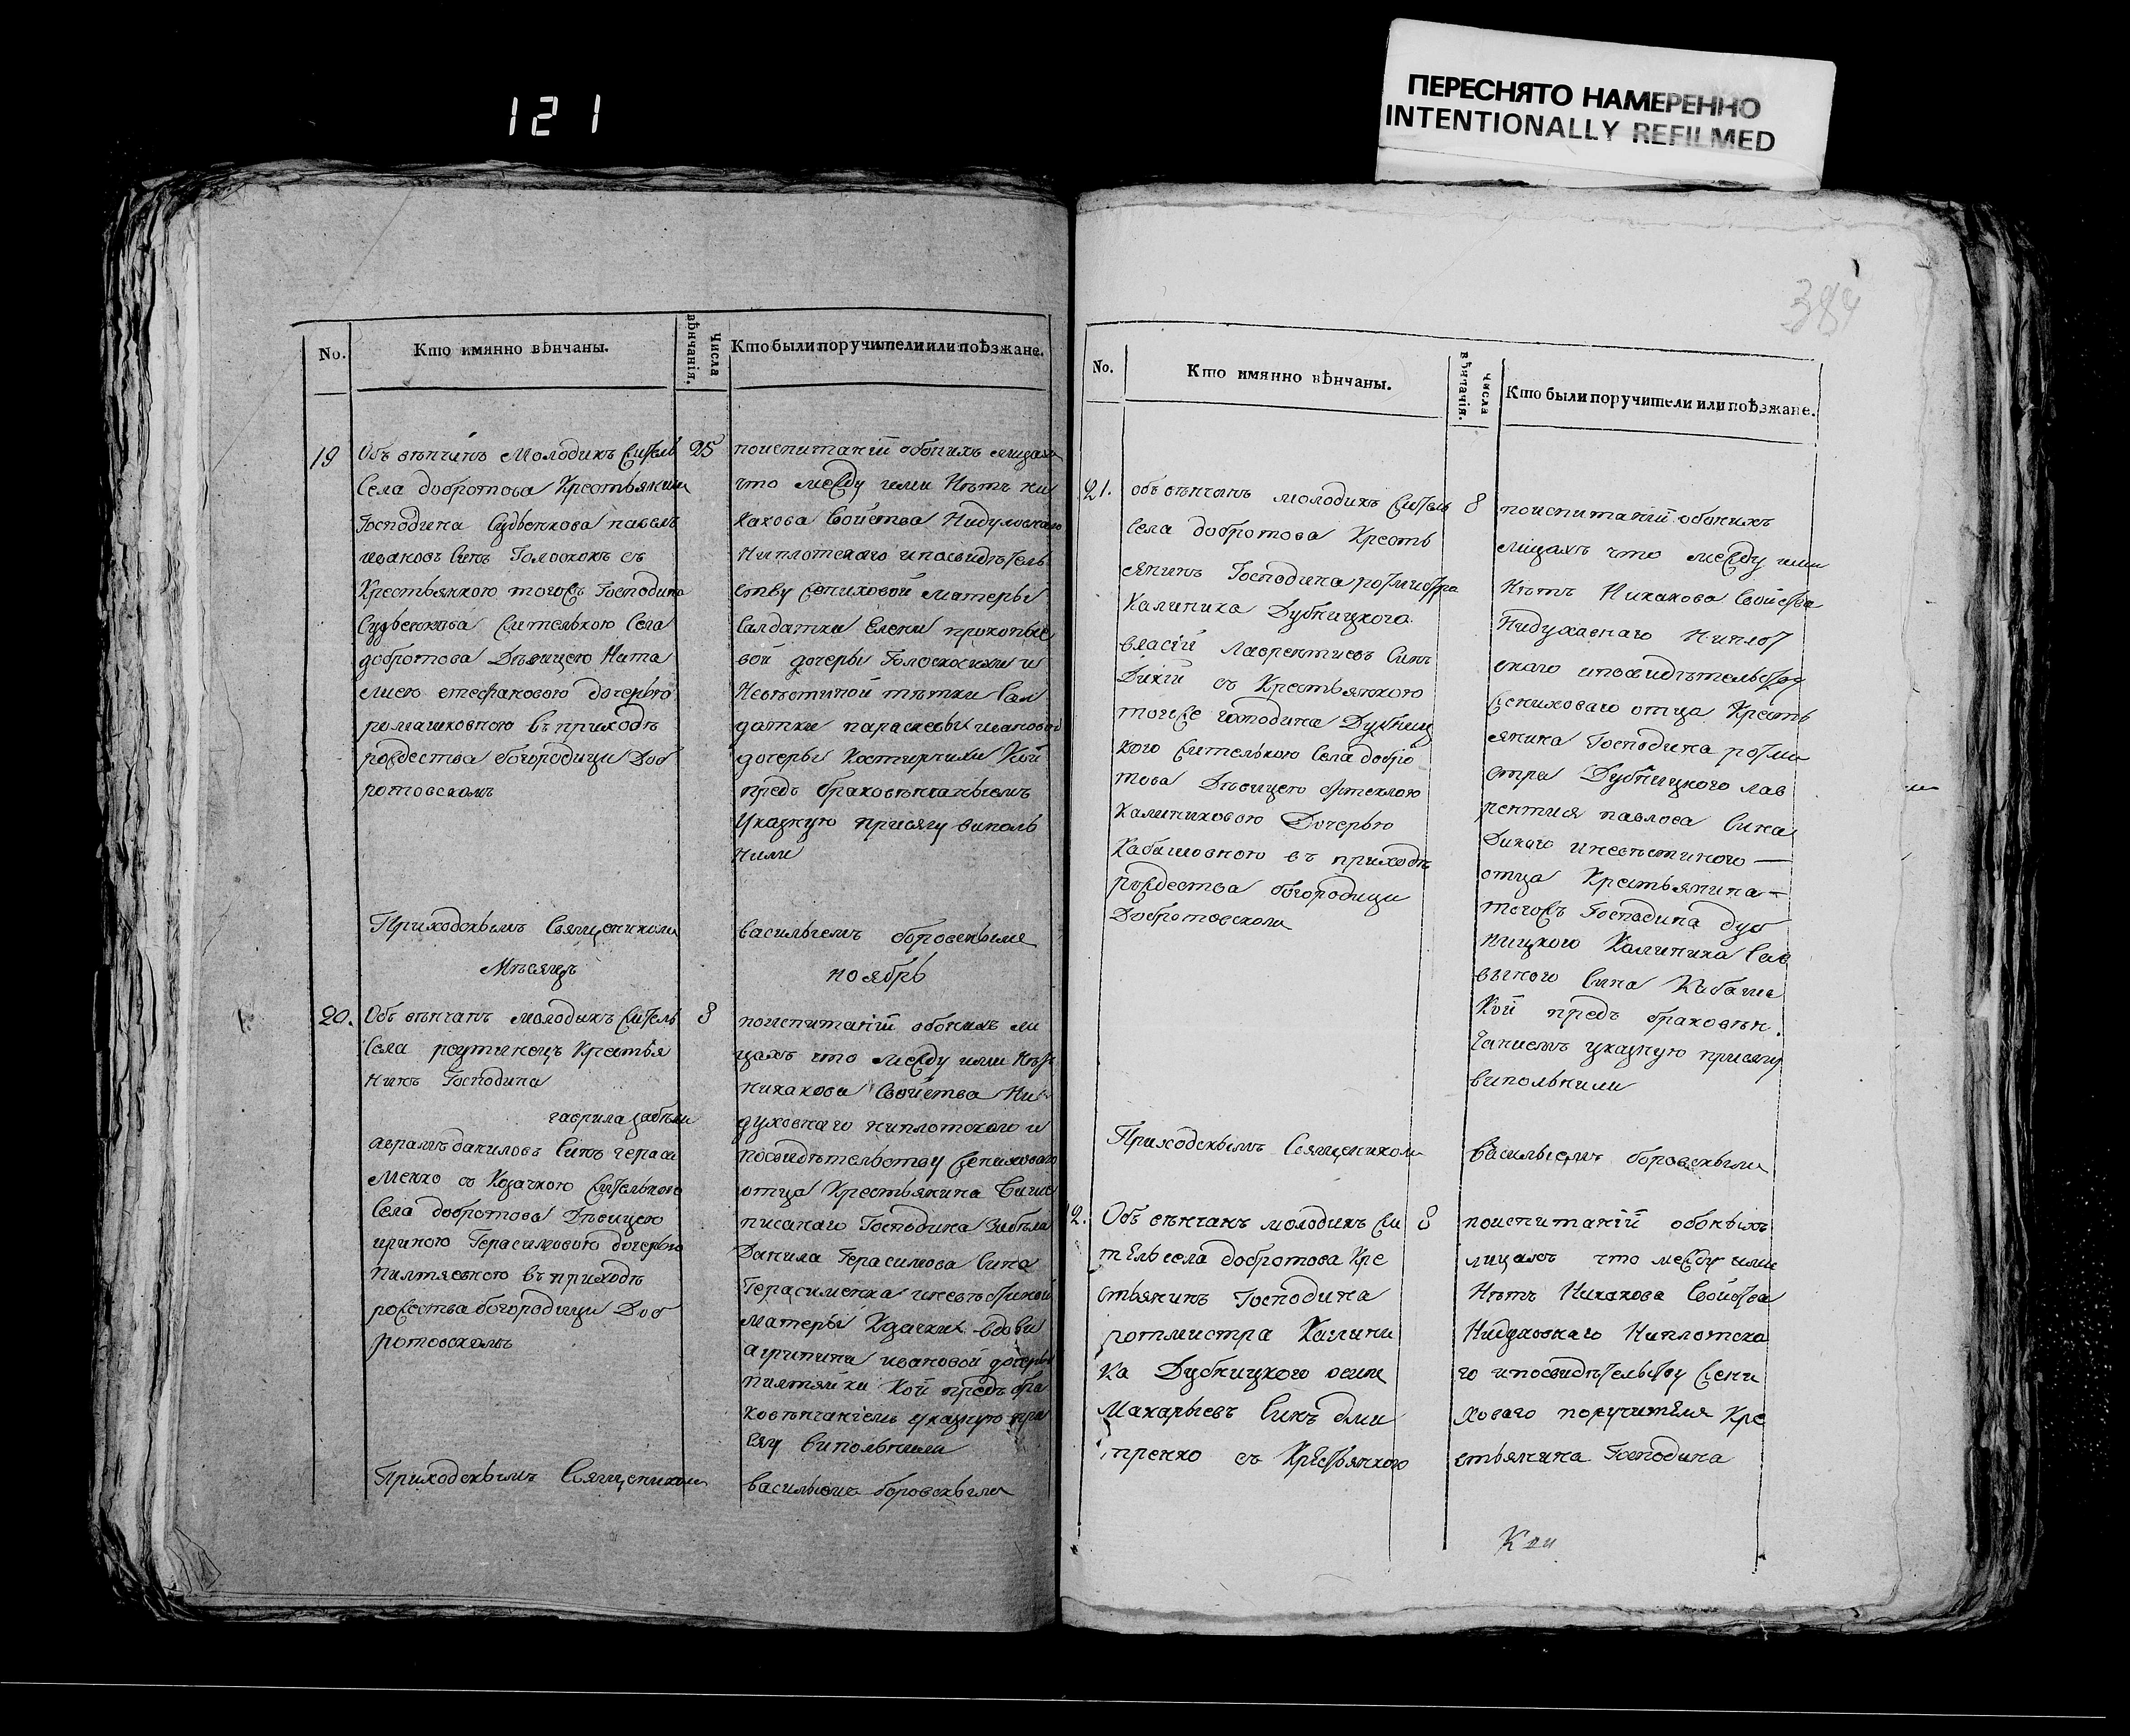 121
ПЕРЕСНЯТО НАМЕРЕННО
INTENTIONALLY REFILMED
No.
Кто имянно вѣнчаны.
Числа вѣнчанія.
Кто были поручители или поѣзжане.
19
Объ вѣнчинъ Молодикъ житель
Села добротова Крестьянин
Господина Судьенкова павелъ
ивановъ Синъ Голоскокъ съ
Крестьянкою тогожъ Господина
Судьенкова жителкою Села
добротова Дѣвицею Ната
лиею стефановою дочерью
ромашковною въ приходѣ
рождества богородици Доб
ротовскомъ
25
поиспитаній обоихъ лицахъ
что между ими Нѣтъ ни
какова Свойства Нидуховнаго
Ниплотскаго ипосвидѣтель
ству жениховой матеры
Салдатки Елени прокопие
вой дочеры Голоскочихи и
Невѣстиной тѣтки Сал
датки параскевы ивановой
дочеры Кой
предъ браковѣнчаныемъ
Указную присягу виполь
нили
Приходскымъ Священиком
васильемъ боровскыме
Мѣсяцъ
ноябрь
20.
Объ вѣнчанъ молодикъ житель
Села реутинецъ Крестья
нинъ Господина
гаврила забѣли
аврамъ даниловъ Синъ гераси
менко съ Козачкою жителкою
Села добротова Дѣвицею
ириною Герасимовою дочерью
въ приходѣ
рожества богородици Доб
ротовскомъ
8
поиспитаній обоихъ ли
цахъ что между ими Нѣтъ
никакова Свойства Ни
духовнаго ниплотскаго и
посвидѣтельству женихового
отца Крестьянина више
писанаго Господина Забѣли
Данила Герасимова Сина
Герасименка иневѣстиной
матеры Козачки вдови
агрипини ивановой дочеры
Кой предъ бра
ковѣнчаніемъ указную при
сягу виполнили
Приходскымъ Священиком
васильемъ боровскым
384
No.
Кто имянно вѣнчаны.
Числа вѣнчанія.
Кто были поручители или поѣзжане.
21.
объ вѣнчанъ молодикъ житель
Села добротова Кресть
янинъ Господина ротмистра
Калиника Дубницкого
власій лаврентиевъ Синъ
Дикій съ Крестьянкою
тогоже господина Дубниц
кого жителькою Села добро
това Дѣвицею
Калиниковою Дочерью
Кабашовною въ приходѣ
рождества богородици
Добротовском
8
поиспитаній обоихъ
лицахъ что между ими
Нѣтъ Никакова Свойства
Нидуховнаго Ниплот
скаго ипосвидѣтельству
женихового отца Кресть
янина Господина ротми
стра Дубницкого лав
рентия павлова Сина
Дикого иневѣстиного —
отца Крестьянина —
тогожъ Господина дуб
ницкого Калиника Сав
Сина Кабаша
Кой предъ браковѣн.
чаниемъ указную присягу
виполнили
Приходскымъ Священиком
васильемъ боровскым
2.
Объ вѣнчанъ молодикъ жи
тель села добротова Кре
стьянинъ Господина
ротмистра Калини
ка Дубницкого осип
Макарьевъ Синъ дми
тренко съ Крестьянкою
8
поиспитаній обоихъ
лицахъ что между ими
Нѣтъ Никакова Свойства
Нидуховнаго Ниплотска
го ипосвидѣтельству жени
ховаго поручителя Кре
стьянина Господина